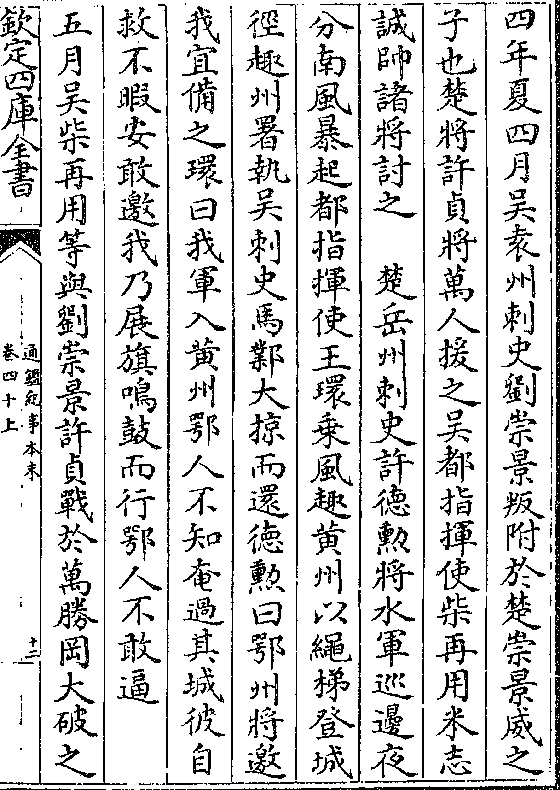 四年夏四月吴袁州刺史劉崇景叛附於楚崇景威之
子也楚將許貞將萬人援之吴都指揮使柴再用米志
誠帥諸將討之　楚岳州刺史許德勲將水軍巡邊夜
分南風暴起都指揮使王環乗風趣黄州以繩梯登城
徑趣州署執吴刺史馬鄴大掠而還德勲曰鄂州將邀
我宜備之環曰我軍入黄州鄂人不知奄過其城彼自
救不暇安敢邀我乃展旗鳴鼓而行鄂人不敢逼
五月吴柴再用等與劉崇景許貞戰於萬勝岡大破之
欽定四庫全書
通鑑紀事本末
卷四十上
十二